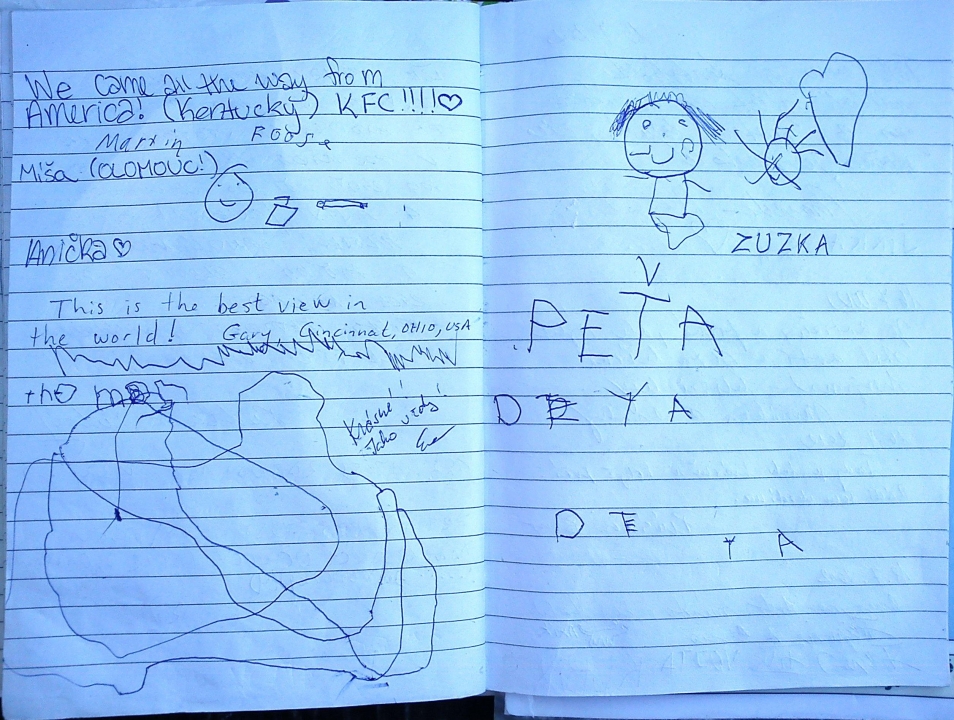 We came all the way from
America! (Kentucky) KFC!!!!♡
Martin
Míša (OLOMOUC!)
Anička♡
This is the best view in
the world! Gary Cincinnat, OHIO, USA
the
Krásné!
Jako vždy!
Eva
ZUZKA
V
PETA
DEYA
D E
Y A